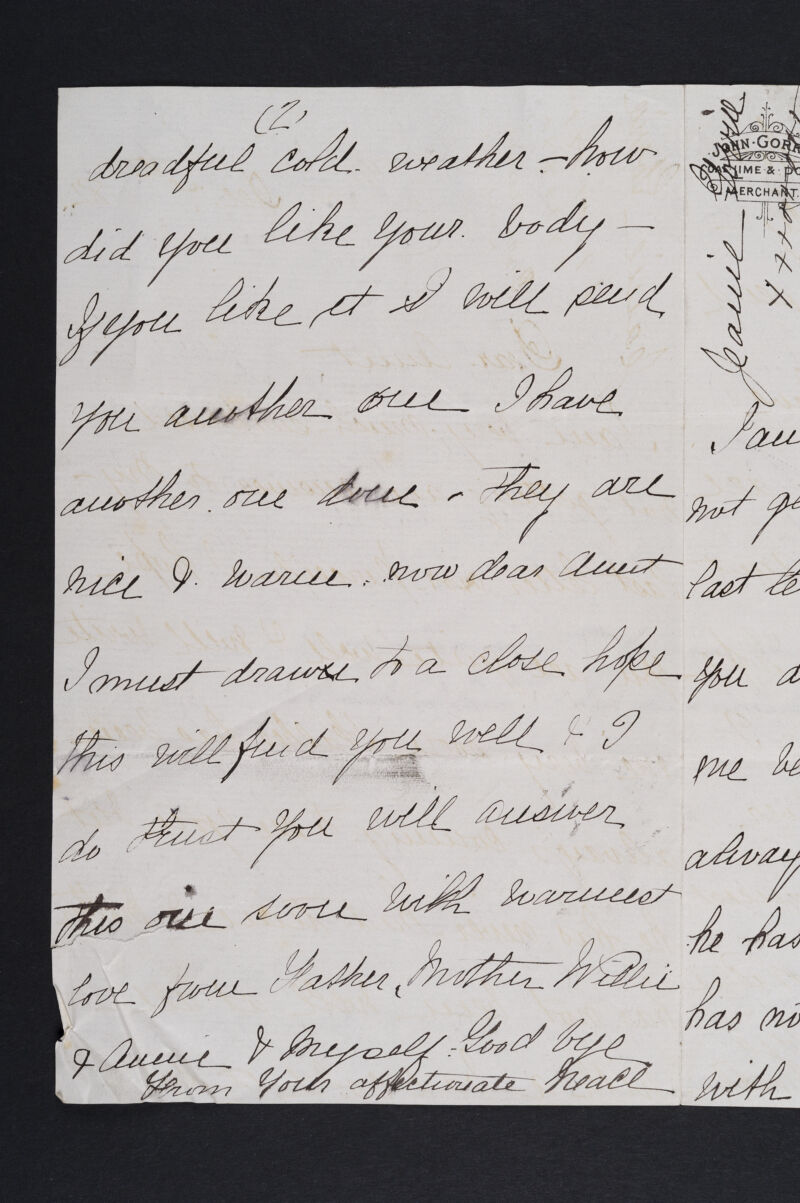 (2)
dreadful cold. weather - how
did you like your. body -
If you like it I will send
you another one I have
another. one done - They are
nice & warm. now dear Aunt
I must draw to a close hope
this will find you well & I
do trust you will answer
this one soon with warmest
love from Father, Mother Willie
& Annie & Myself. Good bye
From Your affectionate Neace
Jeanie
JOHN GORR
LIME &
MERCHANT.
x x x
I am
not ge
last le
you d
me be
alway
he has
has no
with